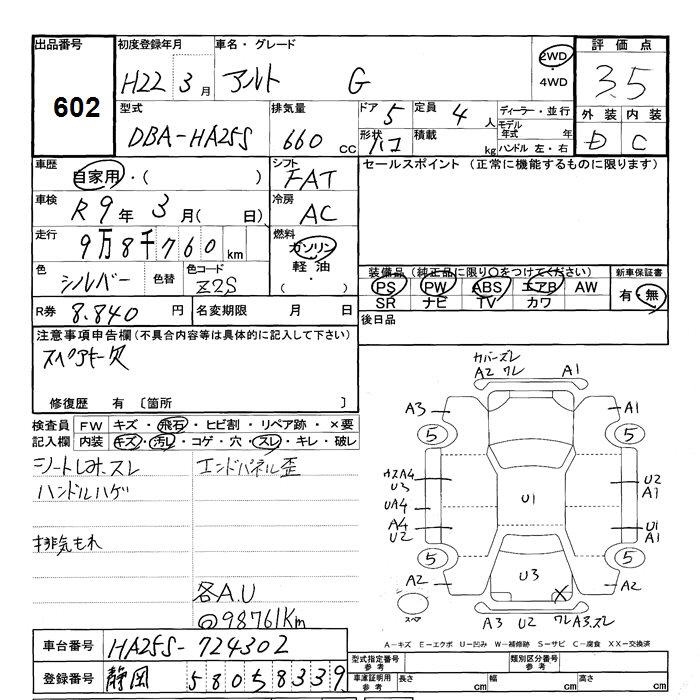 出品番号 初度登録年月 車名・グレード 評価点
602
H22 3月 アルト G 2WD ・ 4WD 3.5
型式 排気量 ドア 5 定員 4人 ディーラー・並行
外装 内装
DBA-HA25S 660cc 形状 ハコ 積載 kg モデル年式 年
ハンドル 左・右
D C
車歴 自家用・( ) シフト FAT セールスポイント (正常に機能するものに限ります)
車検 R9年3月( 日) 冷房 AC
走行 9万8千760km 燃料 ガソリン 軽油 ・( )
色 シルバー 色替 色コード Z2S
装備品 (純正品に限り○をつけてください) 新車保証書
PS PW ABS エアB AW 有・無
SR ナビ TV カワ
R券 8.840円 名変期限 月 日
後日品
注意事項申告欄(不具合内容等は具体的に記入して下さい)
スペアキー欠
修復歴 有 〔箇所 〕
検査員記入欄 FW キズ・飛石・ヒビ割・リペア跡・×要
内装 キズ・汚レ・コゲ・穴・スレ・キレ・破レ
シートしみ、スレ エンドパネル歪
ハンドルハゲ
排気もれ
各A.U
@98761Km
カバーズレ
A2 ワレ A1
A3 A1
5 5
U3 U2
A1
UA4 U1
A4 U1
U2 A1
5 5
A2 U3 A2
スペア A3 U2 ワレ A3.ズレ
A-キズ E-エクボ U-凹み W-補修跡 S-サビ C-腐食 XX-交換済
車台番号 HA25S-724302
型式指定番号 参考 類別区分番号 参考
登録番号 静岡 580 58339
車庫証明用 参考 長さ cm 幅 cm 高さ cm